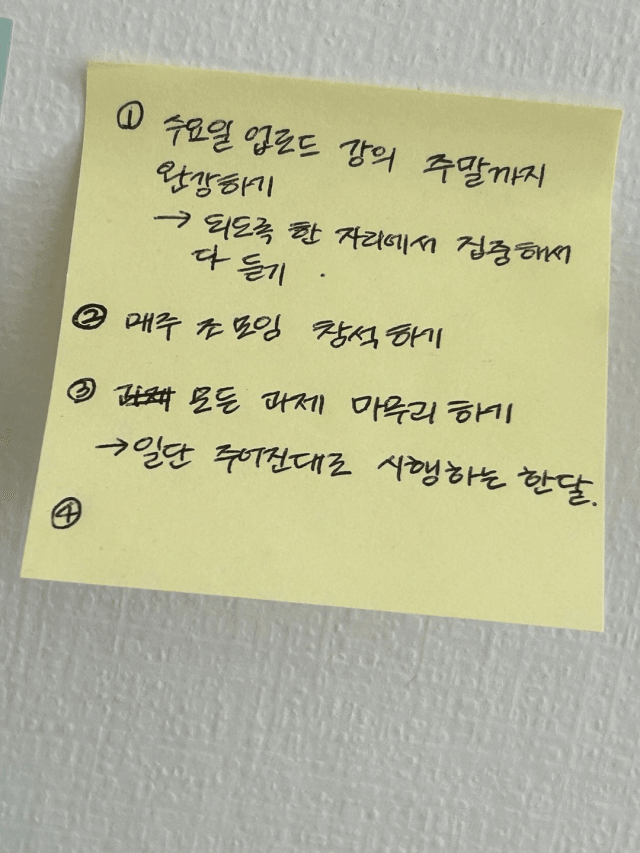 ① 수요일 업로드 강의 주말까지
완강하기
→ 되도록 한 자리에서 집중해서
다 듣기.
② 매주 조모임 참석하기
③ 모든 과제 마무리하기
→ 일단 주어진대로 시행하는 한달.
④